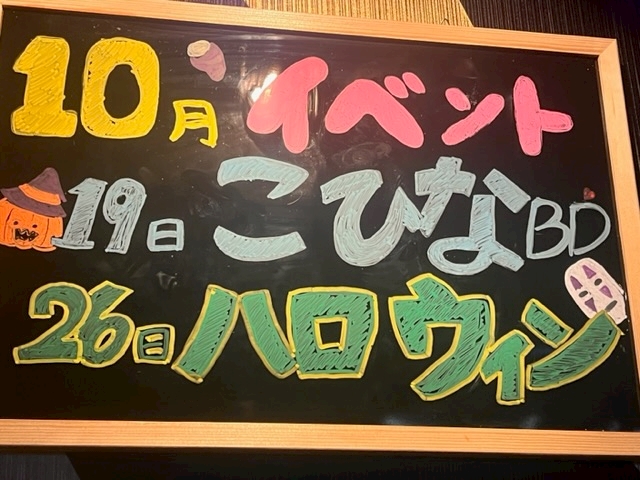 10月 イベント
19日 こひなBD
26日 ハロウィン